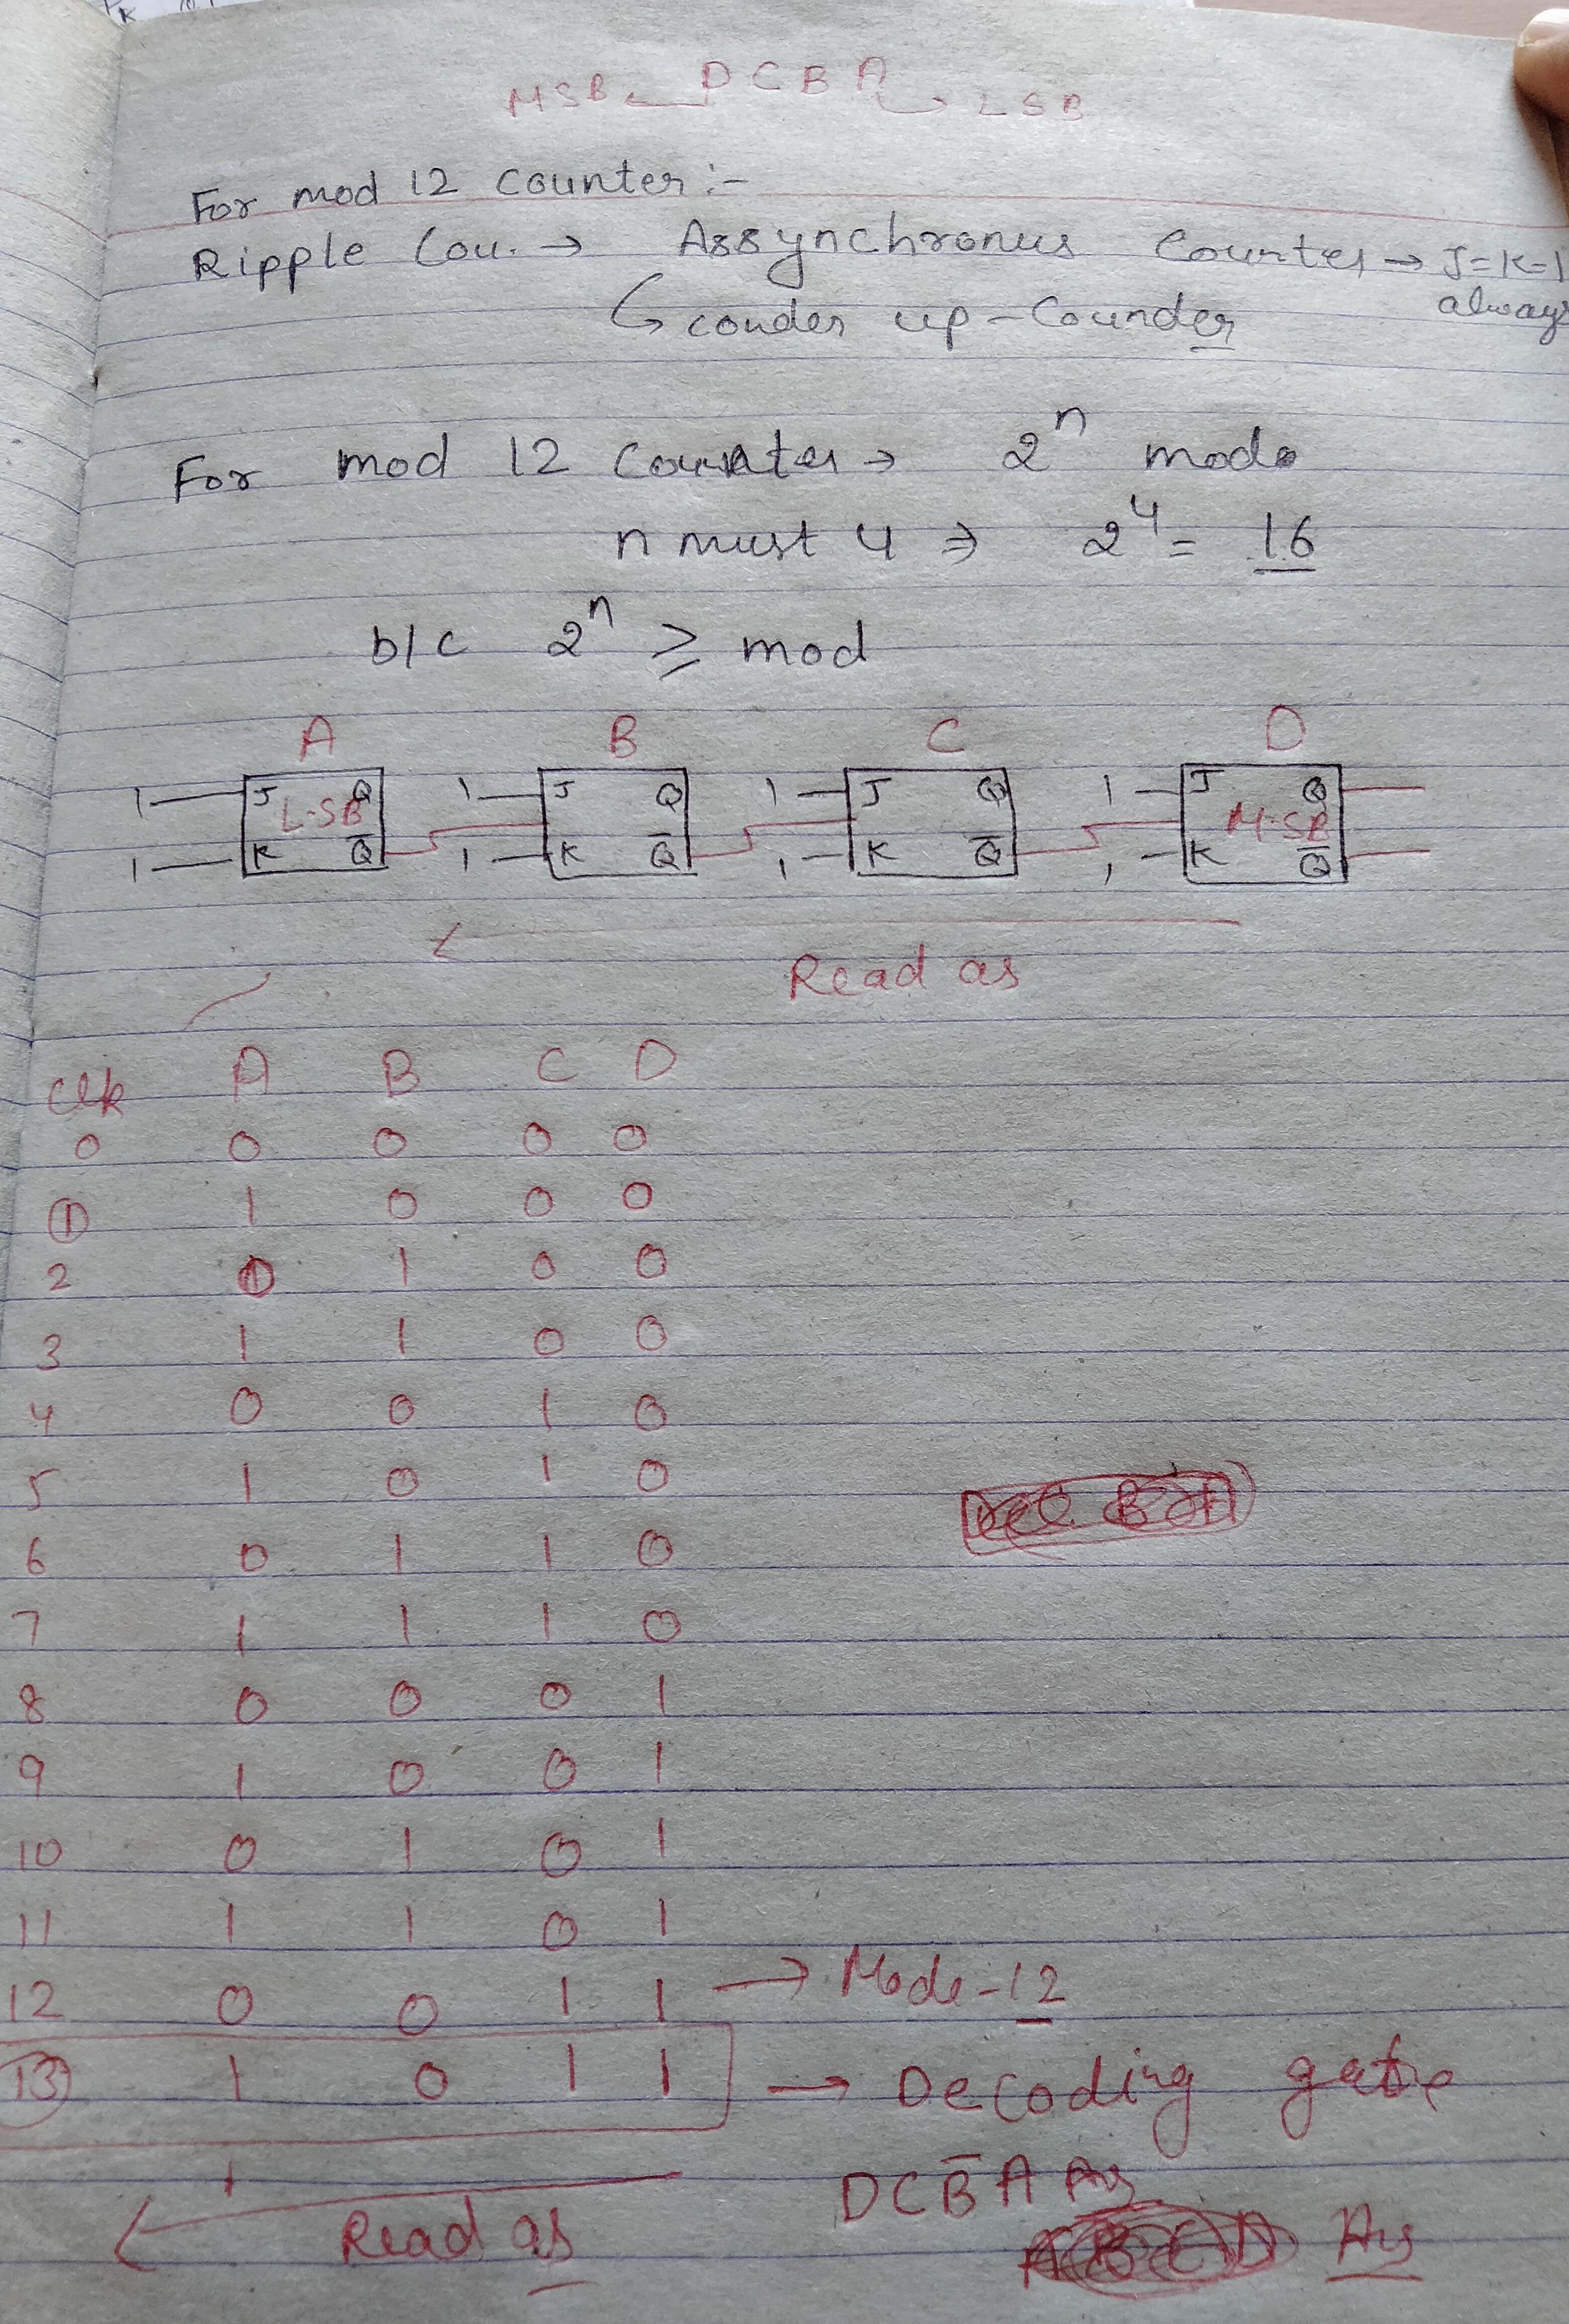 MSB ← DCBA → LSB
For mod 12 counter :-
Ripple Cou. → Assynchronus Counter → J=K=1
always
↳ couder up-Counder
For mod 12 Counter → 2ⁿ mode
n must 4 ⇒ 2⁴ = 16
b/c 2ⁿ ≥ mod
A B C D
1 J Q 1 J Q 1 J Q 1 J Q
L·SB M·SB
1 K Q̅ 1 K Q̅ 1 K Q̅ 1 K Q̅
Read as
Clk A B C D
0 0 0 0 0
1 1 0 0 0
2 0 1 0 0
3 1 1 0 0
4 0 0 1 0
5 1 0 1 0
6 0 1 1 0
7 1 1 1 0
8 0 0 0 1
9 1 0 0 1
10 0 1 0 1
11 1 1 0 1
12 0 0 1 1 → Mode-12
13 1 0 1 1 → Decoding gate
DCB̅A Ay
Read as
Ay